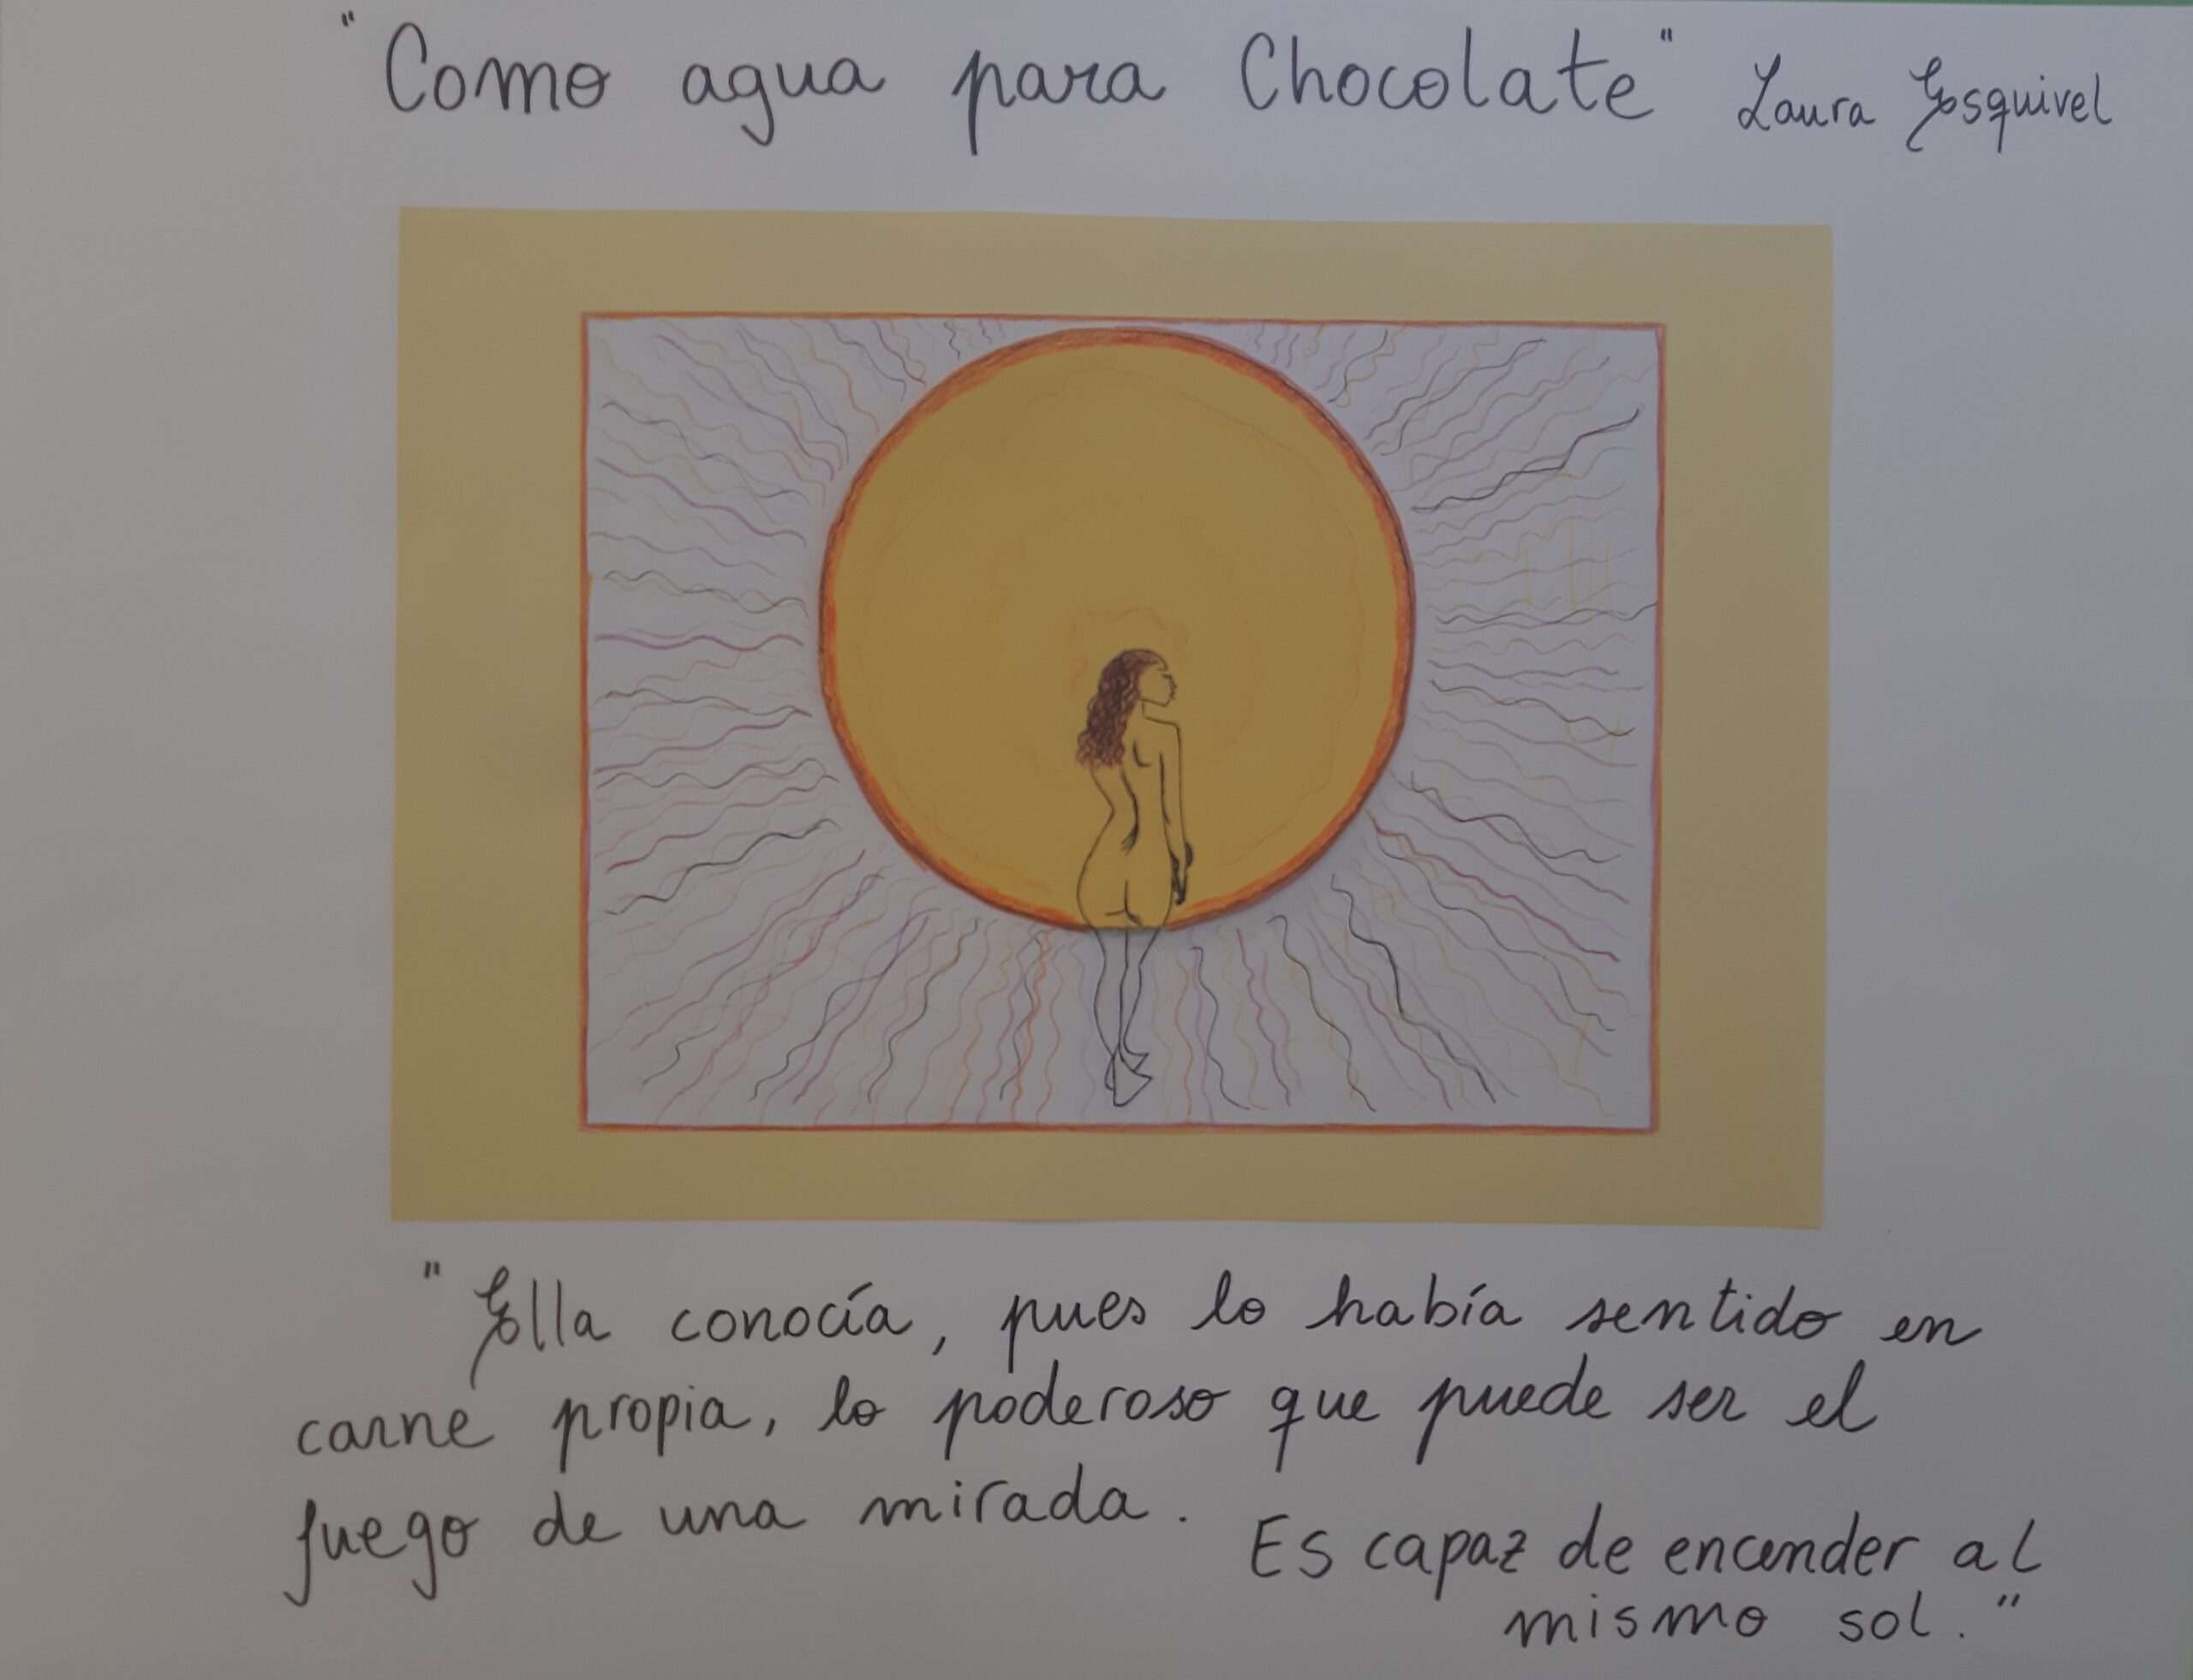 "Como agua para Chocolate" Laura Esquivel
"Ella conocía, pues lo había sentido en
carne propia, lo poderoso que puede ser el
fuego de una mirada. Es capaz de encender al
mismo sol."